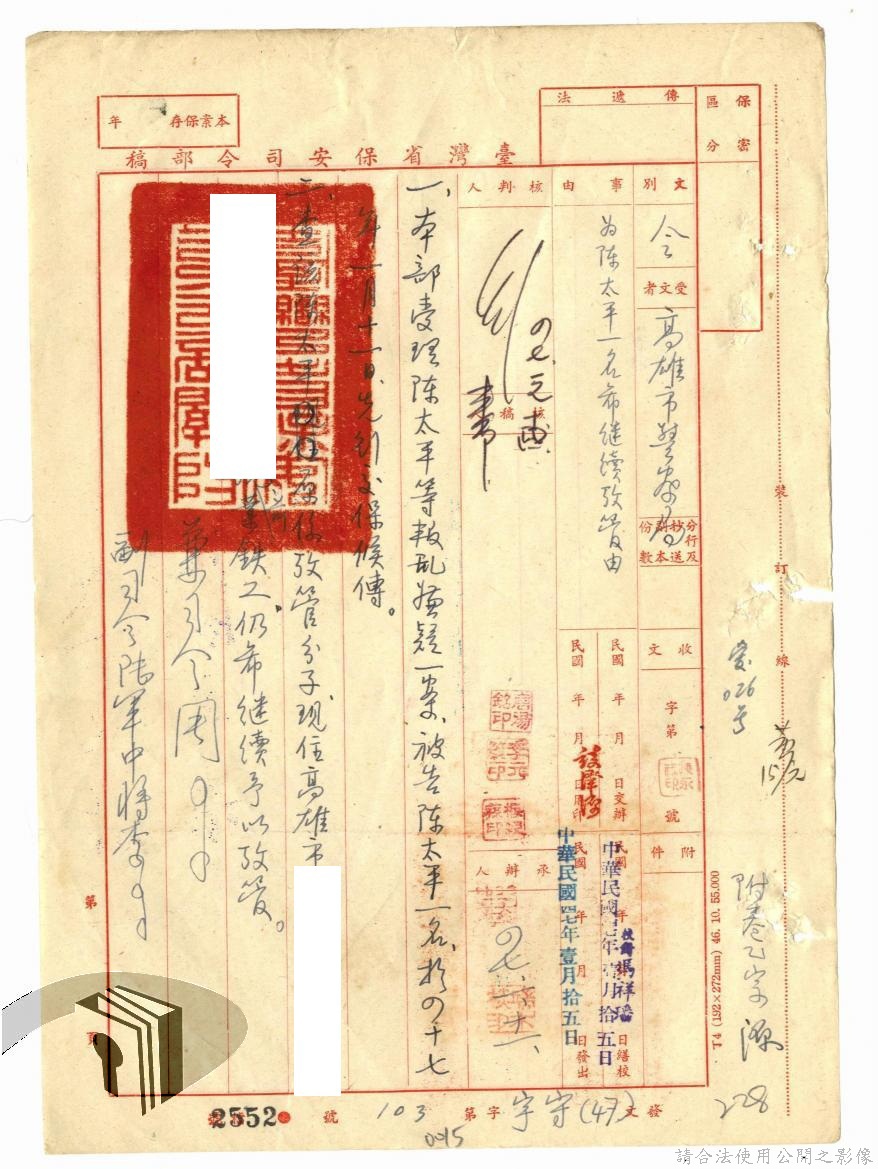 保密區分
傳遞法
本案保存　年
臺灣省保安司令部稿
文別　令
受文者　高雄市警察局
分行及抄送副本份數
事由　為陳太平一名希繼續攷管由
核判人
核稿
承辦人
收文　字第　號
附件
民國　年　月　日交辦
民國　年　月　日用印
民國　年　月　日繕校
民國　年　月　日發出
中華民國四七年壹月拾五日
中華民國四七年壹月拾五日
一、本部受理陳太平等叛亂嫌疑一案，被告陳太平一名，於四十七
年一月十一日先行交保候傳。
二、查該陳太平
原係攷管分子，現住高雄市
業鉄工仍希繼續予以攷管。
兼司令周
副司令陸軍中將李
裝訂線
T4 (192×272mm) 46. 10. 55.000
第　頁
發文(47)宇守字第103號
0415
2552
附卷乙宗
228
請合法使用公開之影像